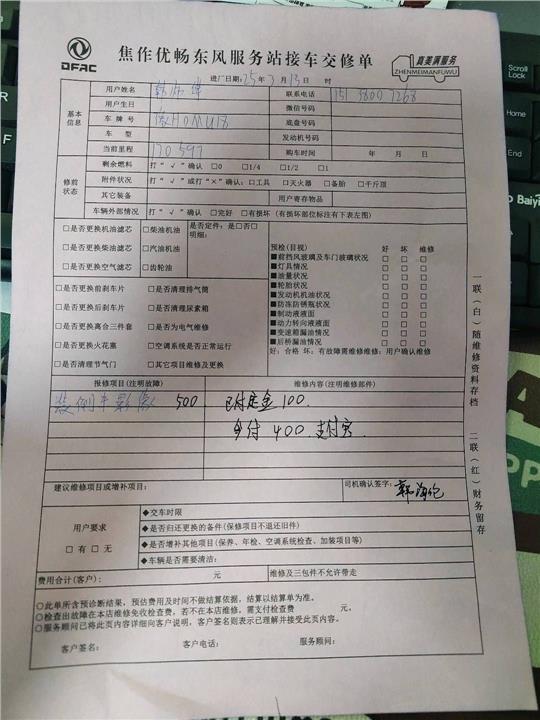 DFAC
焦作优畅东风服务站接车交修单
真美满服务
ZHENMEIMANFUWU
进厂日期:25年3月13日 时
基本信息
用户姓名
联系电话 151 3800 7268
用户生日
微信号码
车 牌 号 豫HDMU18
底盘号码
车 型
发动机号码
当前里程 170597
购车时间 年 月 日
修前状态
剩余燃料 打“√”确认 □0 □1/4 □1/2 □1
附件状况 打“√”或打“×”确认:□工具 □灭火器 □备胎 □千斤顶
其它装备
用户寄存物品
车辆外部情况 打“√”确认 □完好 □有损坏(有损坏部位标注有下表左图)
□是否更换机油滤芯 □柴油机油 是否定件:是□否□
明细:
□是否更换柴油滤芯 □汽油机油
□是否更换空气滤芯 □齿轮油
□是否更换前刹车片 □是否清理排气筒
□是否更换后刹车片 □是否清理尿素箱
□是否更换离合三件套 □是否为电气维修
□是否更换火花塞 □空调系统是否正常运行
□是否清理节气门 □其它项目维修及更换
预检(目视) 好 坏 维修
■前挡风玻璃及车门玻璃状况 □ □ □
■灯具情况 □ □ □
■油量状况 □ □ □
■轮胎状况 □ □ □
■发动机机油状况 □ □ □
■防冻防锈瓶状况 □ □ □
■制动液液面 □ □ □
■动力转向液液面 □ □ □
■变速箱漏油情况 □ □ □
■后桥漏油情况 □ □ □
好:合格 坏:有故障需维修维修:用户确认维修
报修项目(注明故障) 维修内容(注明维修部件)
装倒车影像 500 已付定金100.
400.支付宝
建议维修项目或增补项目:
司机确认签字:
用户要求
□有 □无
◆交车时限
◆是否归还更换的备件(保修项目不退还旧件)
◆是否增补其他项目(保养、年检、空调系统检查、加装项目等)
◆车辆是否需要清洁:
费用合计(客户): 元
维修及三包件不允许带走
○此单所含预诊断结果,预估费用及时间不做结算依据,结算以结算单为准。
○检查出故障在本店维修免收检查费,若不在本店维修,需支付检查费 元。
○服务顾问已将此页内容详细向客户说明,客户签名则表示已理解并接受此页内容。
客户签名: 客户电话: 服务顾问:
一联(白)随维修资料存档
二联(红)财务留存
Scroll Lock